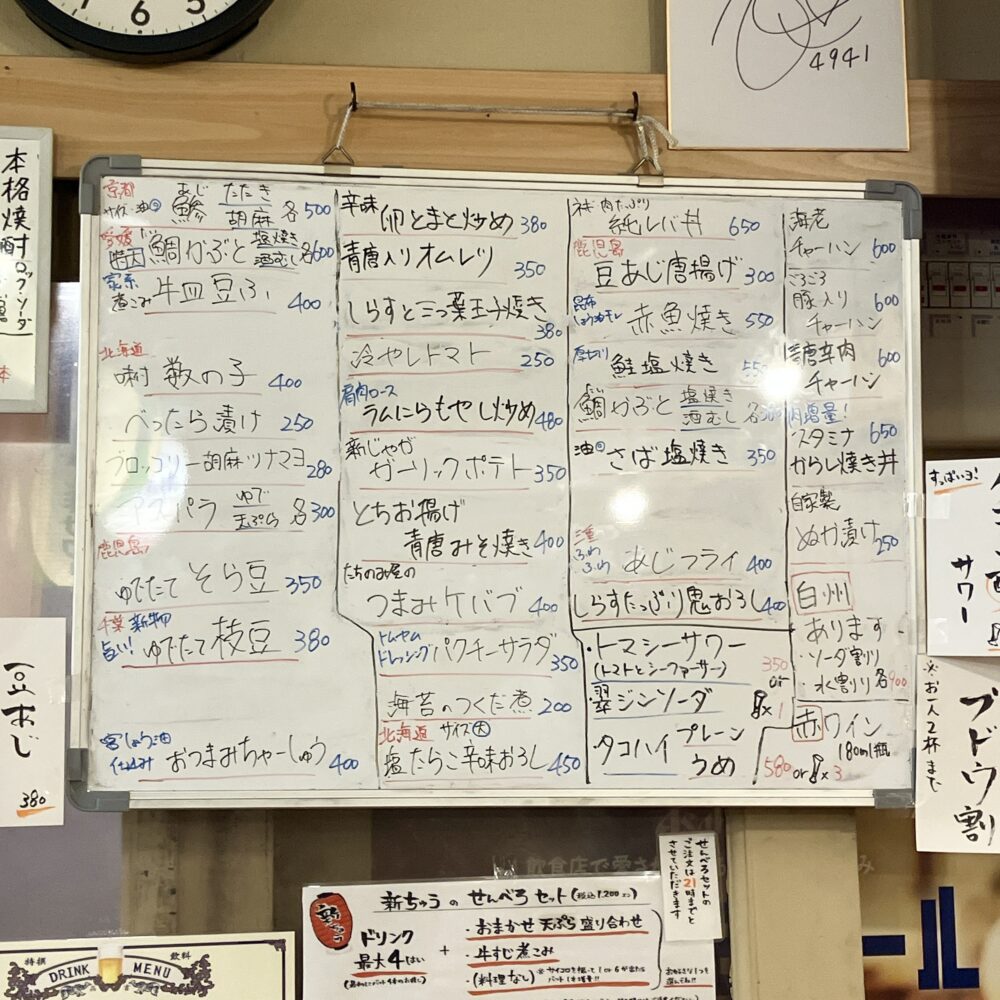 6
4941
本格焼酎
ロック・ソーダ
京都
サイズ・油
あじ
鯵 たたき 胡麻 各500
愛媛
特大 鯛かぶと 塩焼き 酒むし 各600
煮こみ 牛皿豆ふ 400
北海道
数の子 400
べったら漬け 250
ブロッコリー胡麻ツナマヨ 280
アスパラ ゆで 天ぷら 各300
鹿児島
ゆでたて そら豆 350
千葉
旨い! ゆでたて枝豆 380
仕込み おつまみちゃーしゅう 400
辛味 卵とまと炒め 380
青唐入りオムレツ 350
しらすと三つ葉玉子焼き 380
冷やしトマト 250
肩肉ロース
ラムにらもやし炒め 480
新じゃが
ガーリックポテト 350
とちお揚げ
青唐みそ焼き 400
たちのみ屋の
つまみケバブ 400
トムヤム
ドレッシング パクチーサラダ 350
海苔のつくだ煮 200
北海道 サイズ大
塩たらこ辛味おろし 450
肉たっぷり
純レバ丼 650
鹿児島
豆あじ唐揚げ 300
昆布
赤魚焼き 550
厚切り
鮭塩焼き
鯛かぶと 塩焼き 酒むし 各
油 さば塩焼き 350
三重
ふわふわ あじフライ 400
しらすたっぷり鬼おろし 400
・トマシーサワー
(トマトとシークァーサー) 350
or
・翠ジンソーダ ×1
・タコハイ プレーン
うめ
海老
チャーハン 600
ごろごろ
豚入り 600
チャーハン
青唐辛肉 600
チャーハン
肉増量!
スタミナ 650
からし焼き丼
自家製
ぬか漬け 250
白州
あります
・ソーダ割り
・水割り 各900
赤ワイン
180ml瓶
580 or ×3
すっぱいヨ!
サワー
ブドウ割
※お一人2杯まで
豆あじ
380
せんべろセットの
ご注文は21時までと
させていただきます
飲食店で愛さ
新ちゅうのせんべろセット(税込1,200
新ちゅう
ドリンク
最大4はい
+
・おまかせ天ぷら盛り合わせ
・牛すじ煮こみ
・(料理なし)
特撰 DRINK MENU 飲料
ール